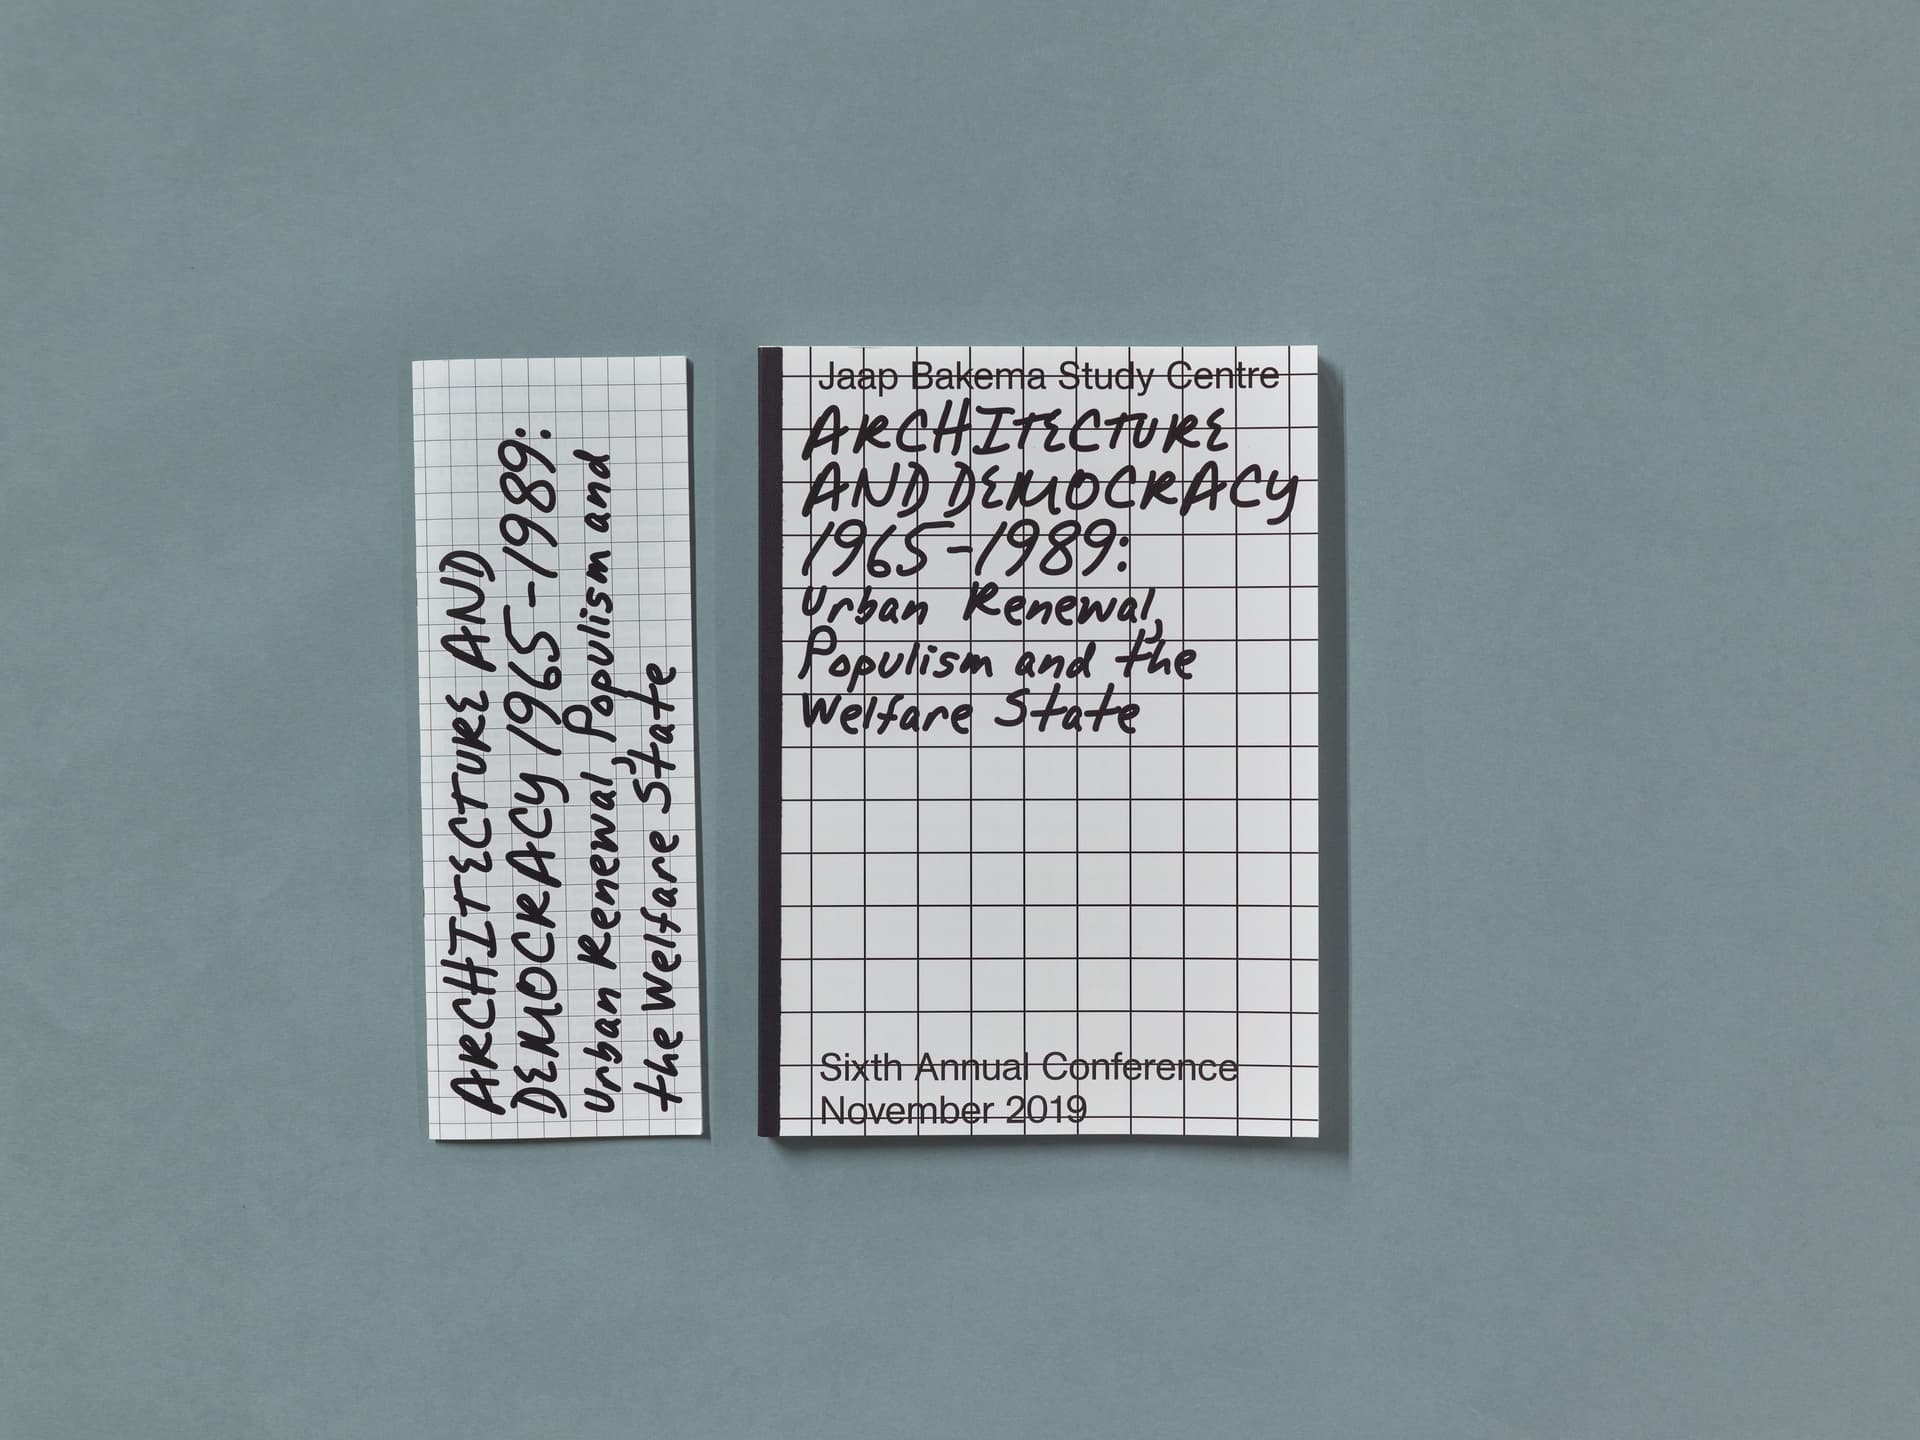 ARCHITECTURE AND
DEMOCRACY 1965-1989:
Urban Renewal, Populism and
the Welfare State
Jaap Bakema Study Centre
ARCHITECTURE
AND DEMOCRACY
1965-1989:
Urban Renewal,
Populism and the
Welfare State
Sixth Annual Conference
November 2019